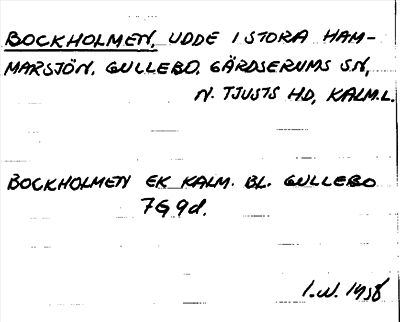 BOCKHOLMEN, UDDE I STORA HAM-
MARSJÖN. GULLEBO. GÄRDSERUMS SN,
N. TJUSTS HD, KALM.L.
BOCKHOLMEN EK KALM. BL. GULLEBO
7G9d.
I.W. 1958